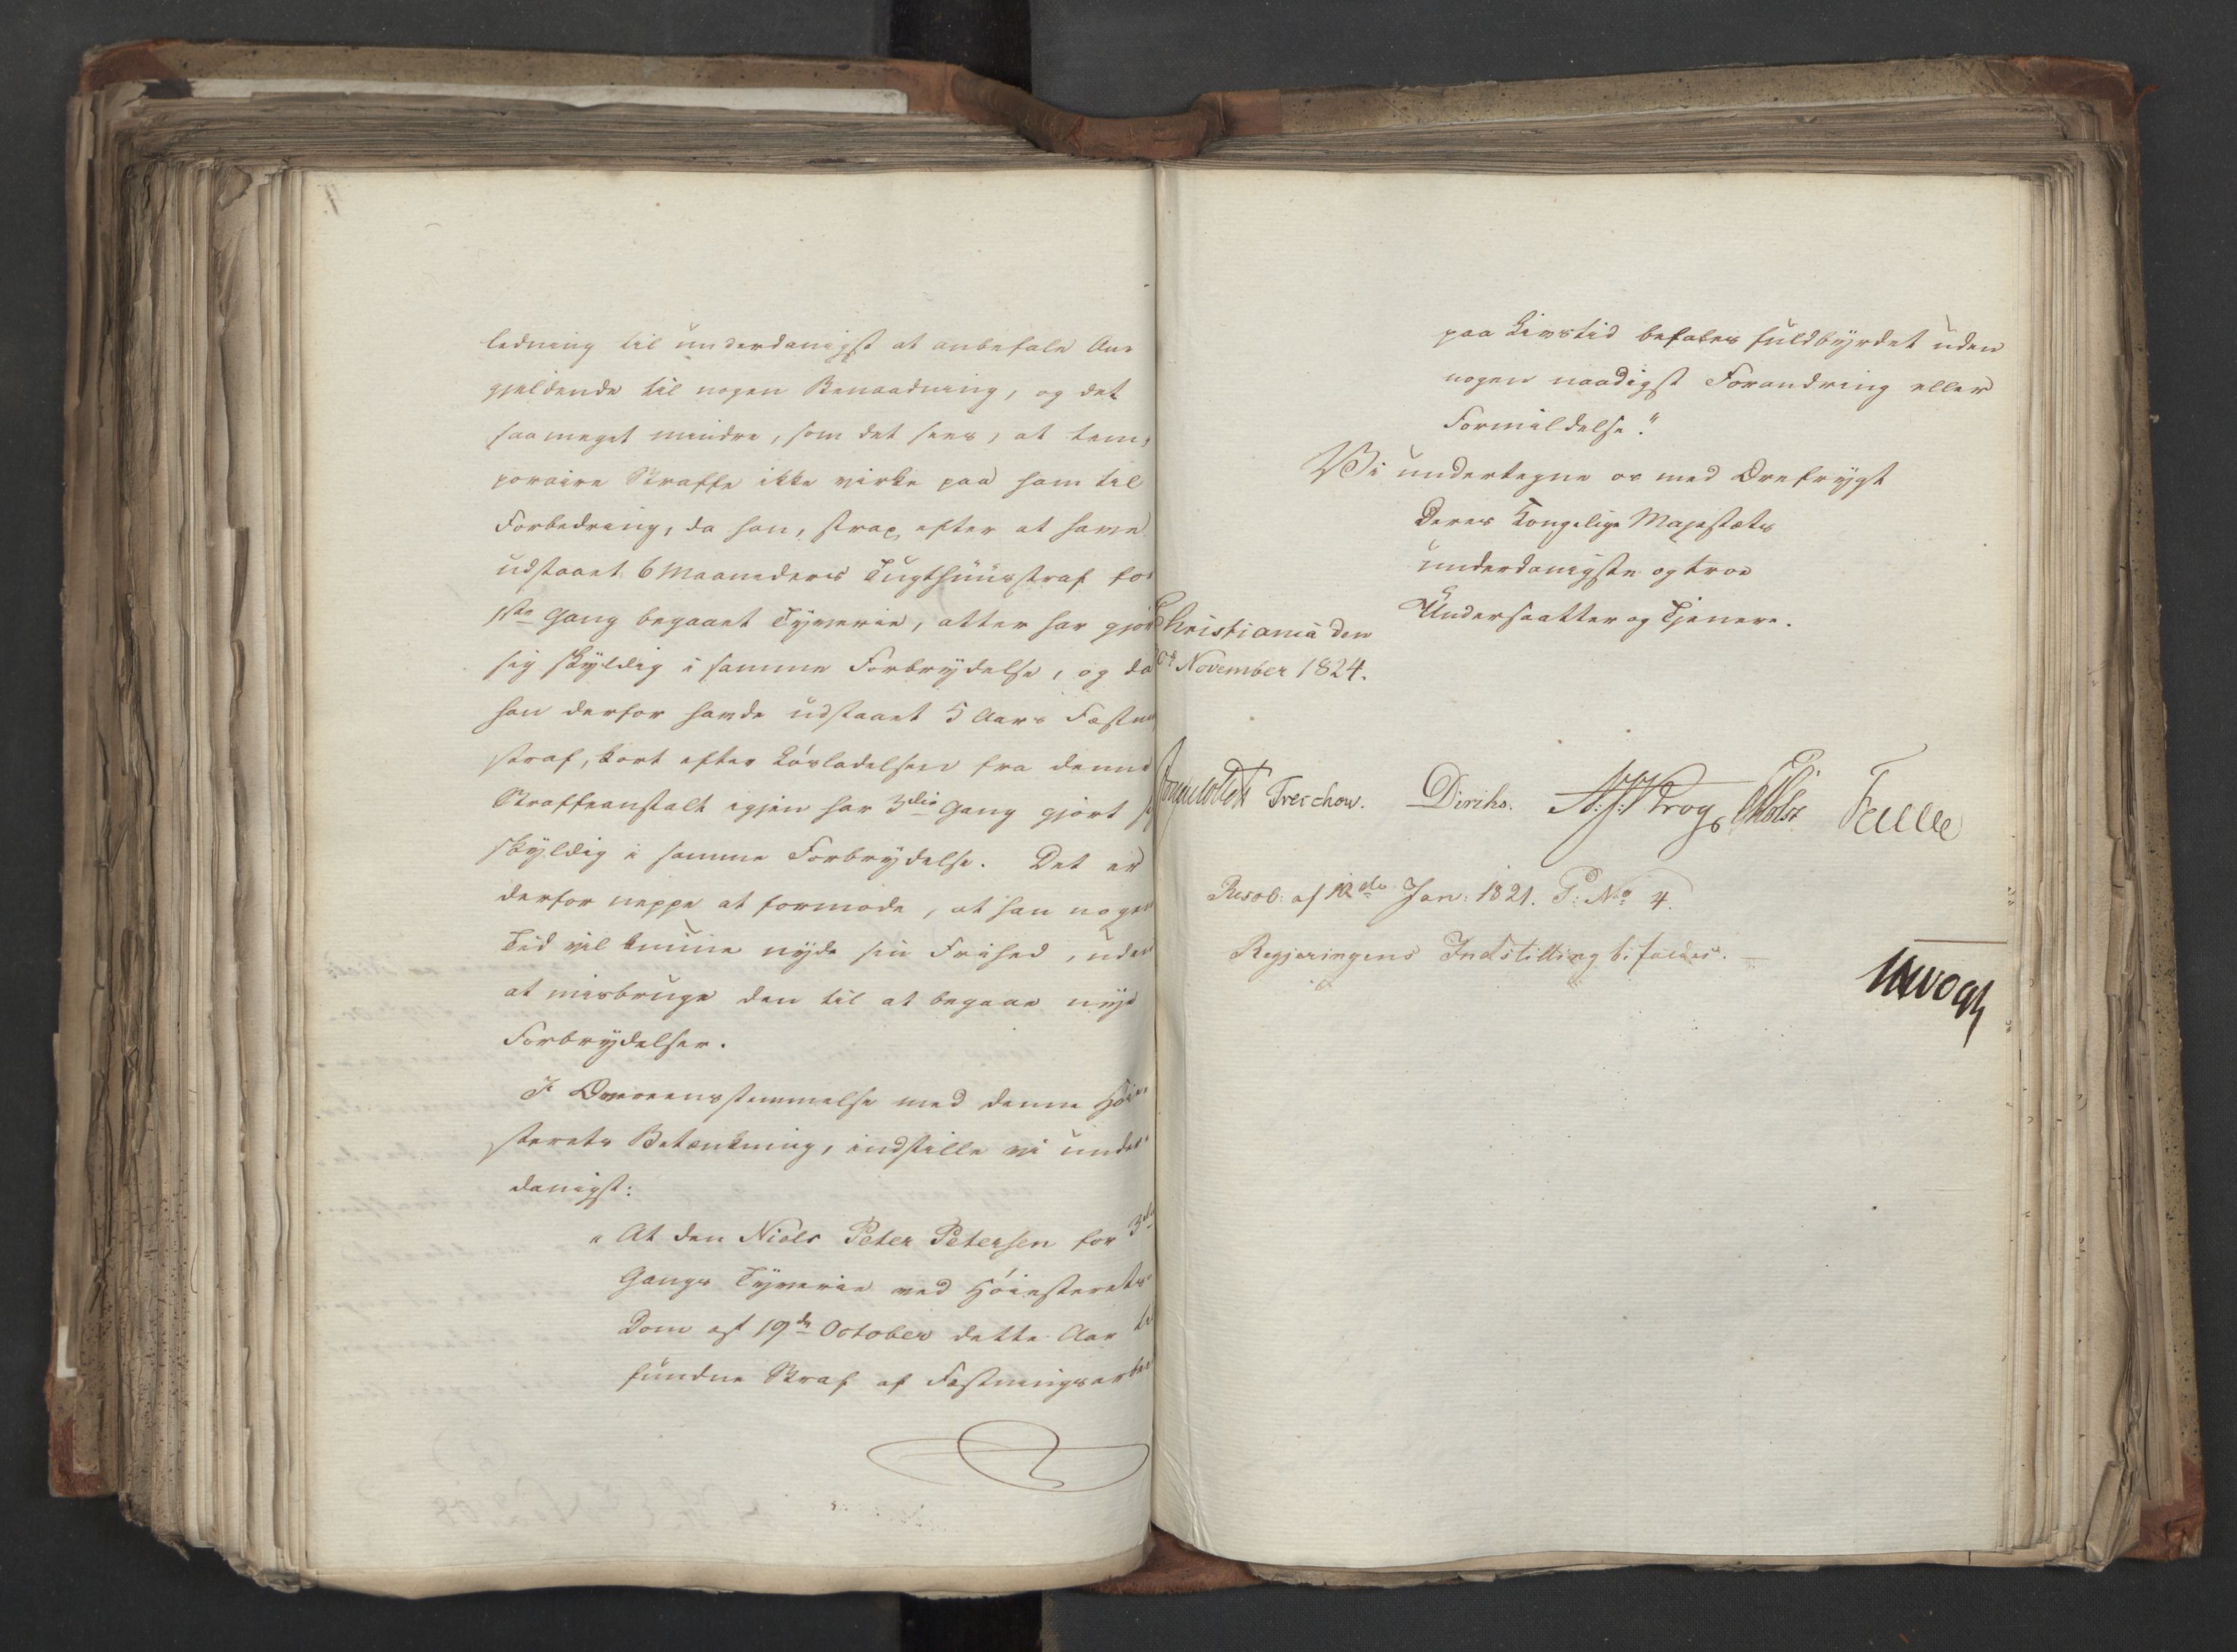 ledning til underdanigst at anbefale Ang
gjeldende til nogen Benaadning, og det
saa meget mindre, som det sees, at tem¬
poraire Straffe ikke virke paa ham til
Forbedring, da han, strax efter at have
udstaaet 6 Maaneders Tugthuusstraf for
1ste Gang begaaet Tyverie, atter har gjort
sig skyldig i samme Forbrydelse, og da
han derfor havde udstaaet 5 Aars Fæstn
straf, kort efter Løsladelsen fra denne
Straffeanstalt igjen har 3die Gang gjort sig
skyldig i samme Forbrydelse. Det er
derfor neppe at formode, at han nogen
Tid vil kunne nyde sin Frihed, uden
at misbruge den til at begaae nye
Forbrydelser.
I Overeensstemmelse med denne Høie¬
sterets Betænkning, indstille vi under¬
danigst:
"At den Niels Peter Petersen for 3die
Gangs Tyverie ved Høiesterets
Dom af 19de October dette Aar
fundne Straf af Fæstningsarbei
paa Livstid befales fuldbyrdet uden
nogen naadigst Forandring eller
Formildelse."
Vi undertegne os med Ærefrygt
Deres Kongelige Majestæts
underdanigste og troe
Undersaatter og Tjenere.
Christiania den
November 1824.
Treschow. Diriks. Krog Holst Fasting
Resol: af 12de Jan: 1821. P: No 4.
Regjeringens Indstilling bifaldes. —
Vogt